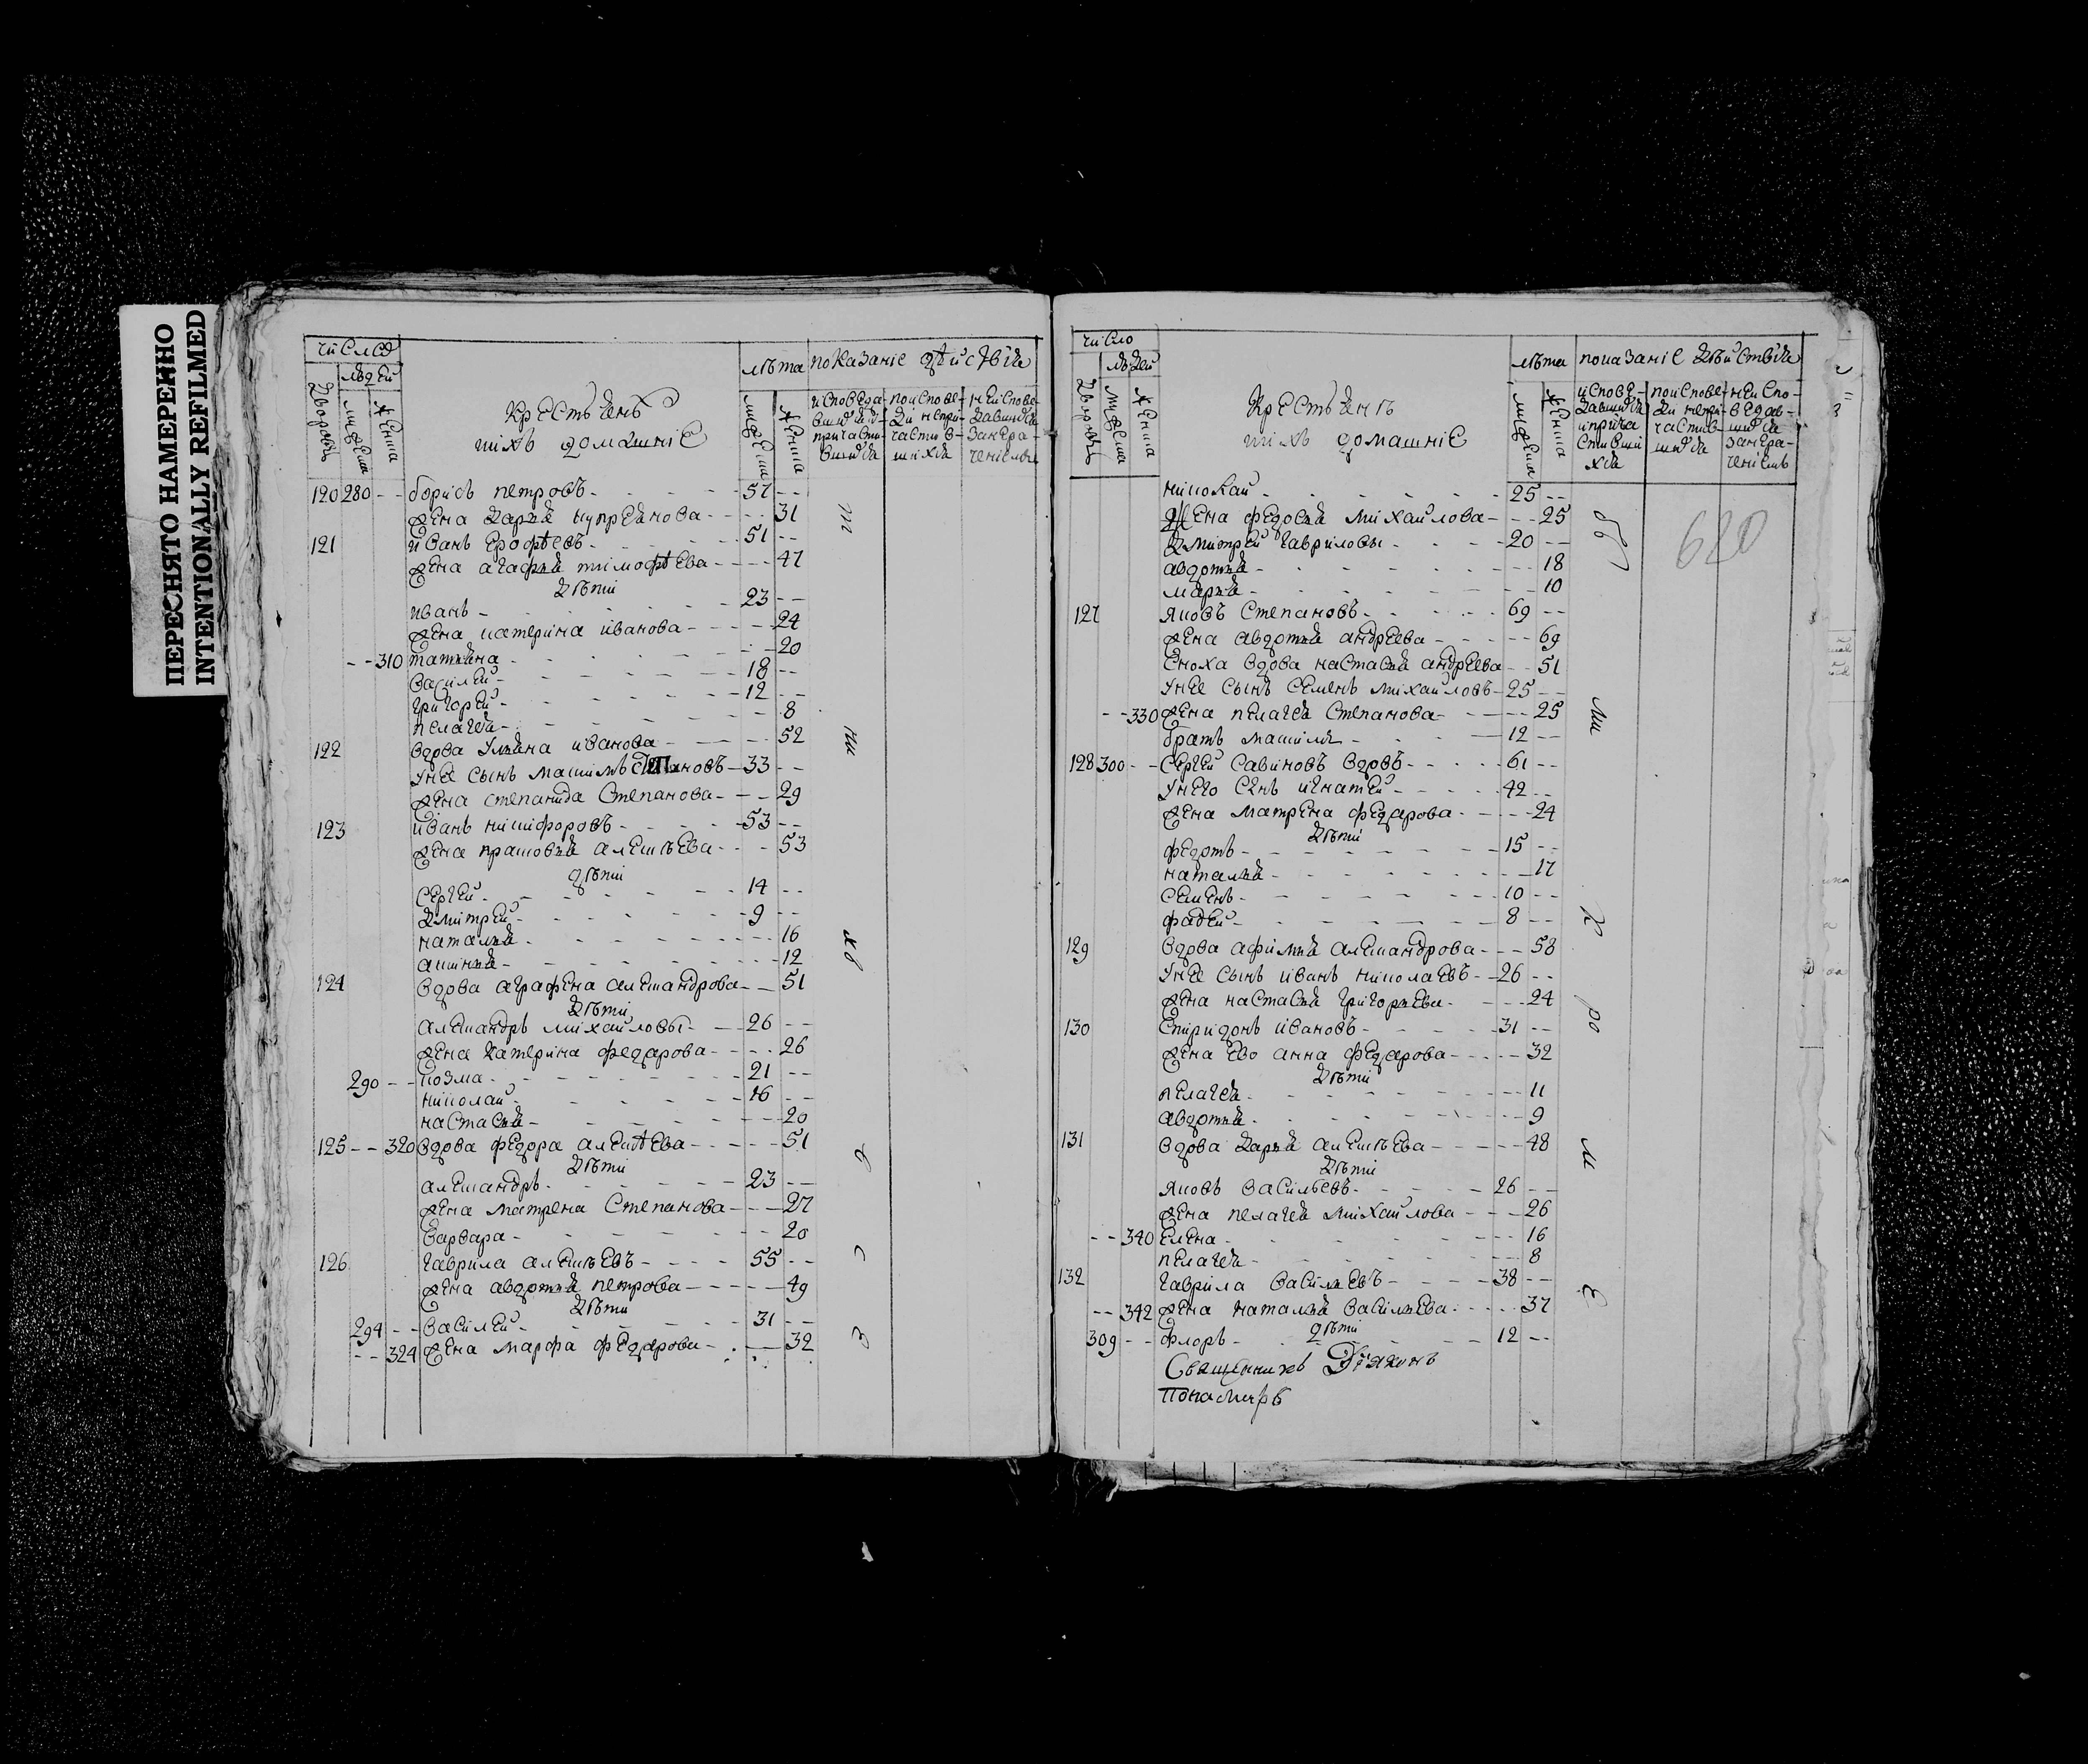 ПЕРЕСНЯТО НАМЕРЕННО
INTENTIONALLY REFILMED
число
людей
дворовъ
мужеска
женска
крестьянъ
ихъ домашніе
лѣта
мужеска
женска
показаніе дѣйствія
исповеда-
вшихся
причасти-
вшихся
по испове-
ди непри-
частив-
шихся
не испове-
давшихся
120 280 -- борисъ петровъ - 57 --
жена дарья купреянова - 31
121 иванъ ерофѣевъ - 51 --
жена агафья тимофѣева - 47
дѣти
иванъ - 23 --
жена катерина иванова - 24
-- 310 татьяна - 20
василей - 18 --
григорей - 12 --
пелагея - 8
122 вдова ульяна иванова - 52
унее сынъ максимъ степановъ - 33 --
жена степанида степанова - 29
123 иванъ никифоровъ - 53 --
жена прасковья алексѣева - 53
дѣти
сергей - 14 --
дмитрей - 9 --
наталья - 16
аксинья - 12
124 вдова аграфена александрова - 51
дѣти
александръ михайловы - 26 --
жена катерина федарова - 26
290 -- козма - 21 --
николай - 16 --
настасья - 20
125 -- 320 вдова федора алексѣева - 51
дѣти
александръ - 23 --
жена матрена степанова - 27
варвара - 20
126 гаврила алексѣевъ - 55 --
жена авдотья петрова - 49
дѣти
294 -- василей - 31 --
-- 324 жена марфа федарова - 32
число
людей
дворовъ
мужеска
женска
крестьянъ
ихъ домашніе
лѣта
мужеска
женска
показаніе дѣйствія
исповѣ-
давшихся
и прича
стивши
хся
по испове-
ди непри-
частив-
шихся
неиспо-
ведав-
шихся
николай - 25 --
жена федосья михайлова - 25
дмитрей гавриловы - 20 --
авдотья - 18
марья - 10
620
127 яковъ степановъ - 69 --
жена авдотья андреева - 69
сноха вдова настасья андреева - 51
унее сынъ семенъ михайловъ - 25 --
-- 330 жена пелагея степанова - 25
братъ максимъ - 12 --
128 300 -- сергей савиновъ вдовъ - 61 --
унего сынъ игнатей - 42 --
жена матрена федарова - 24
дѣти
федотъ - 15 --
наталья - 17
семенъ - 10 --
фадей - 8 --
129 вдова афимья александрова - 58
унее сынъ иванъ николаевъ - 26 --
жена настасья григорьева - 24
130 спиридонъ ивановъ - 31 --
жена ево анна федарова - 32
дѣти
пелагея - 11
авдотья - 9
131 вдова дарья алексѣева - 48
дѣти
яковъ васильевъ - 26 --
жена пелагея михайлова - 26
-- 340 елена - 16
пелагея - 8
132 гаврила васильевъ - 38 --
-- 342 жена наталья васильева - 37
дѣти
309 -- флоръ - 12 --
Священникъ Дьяконъ
Понамарь